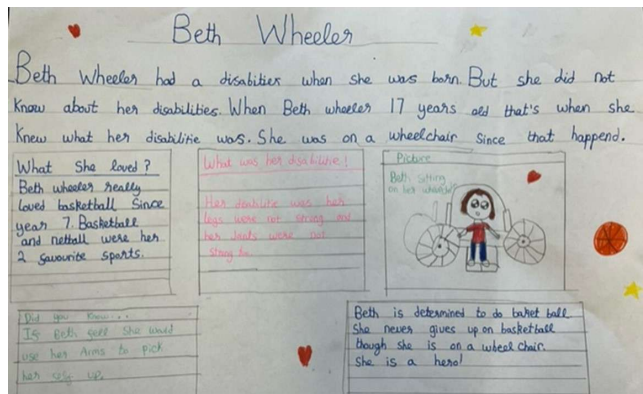 Beth Wheeler
Beth Wheeler had a disabilities when she was born. But she did not
know about her disabilities. When Beth wheeler 17 years old that's when she
knew what her disabilitie was. She was on a wheelchair since that happend.
What She loved?
Beth wheeler really
loved basketball Since
year 7. Basketball
and netball were her
2 favourite sports.
What was her disabilitie!
Her disabilitie was her
legs were not strong and
her Joints were not
strong too
Picture
Beth Sitting
on her wheelchair
Did you know...
If Beth fell She would
use her Arms to pick
her up.
Beth is determined to do basket ball
She never gives up on basketball
though she is on a wheel chair.
She is a hero!